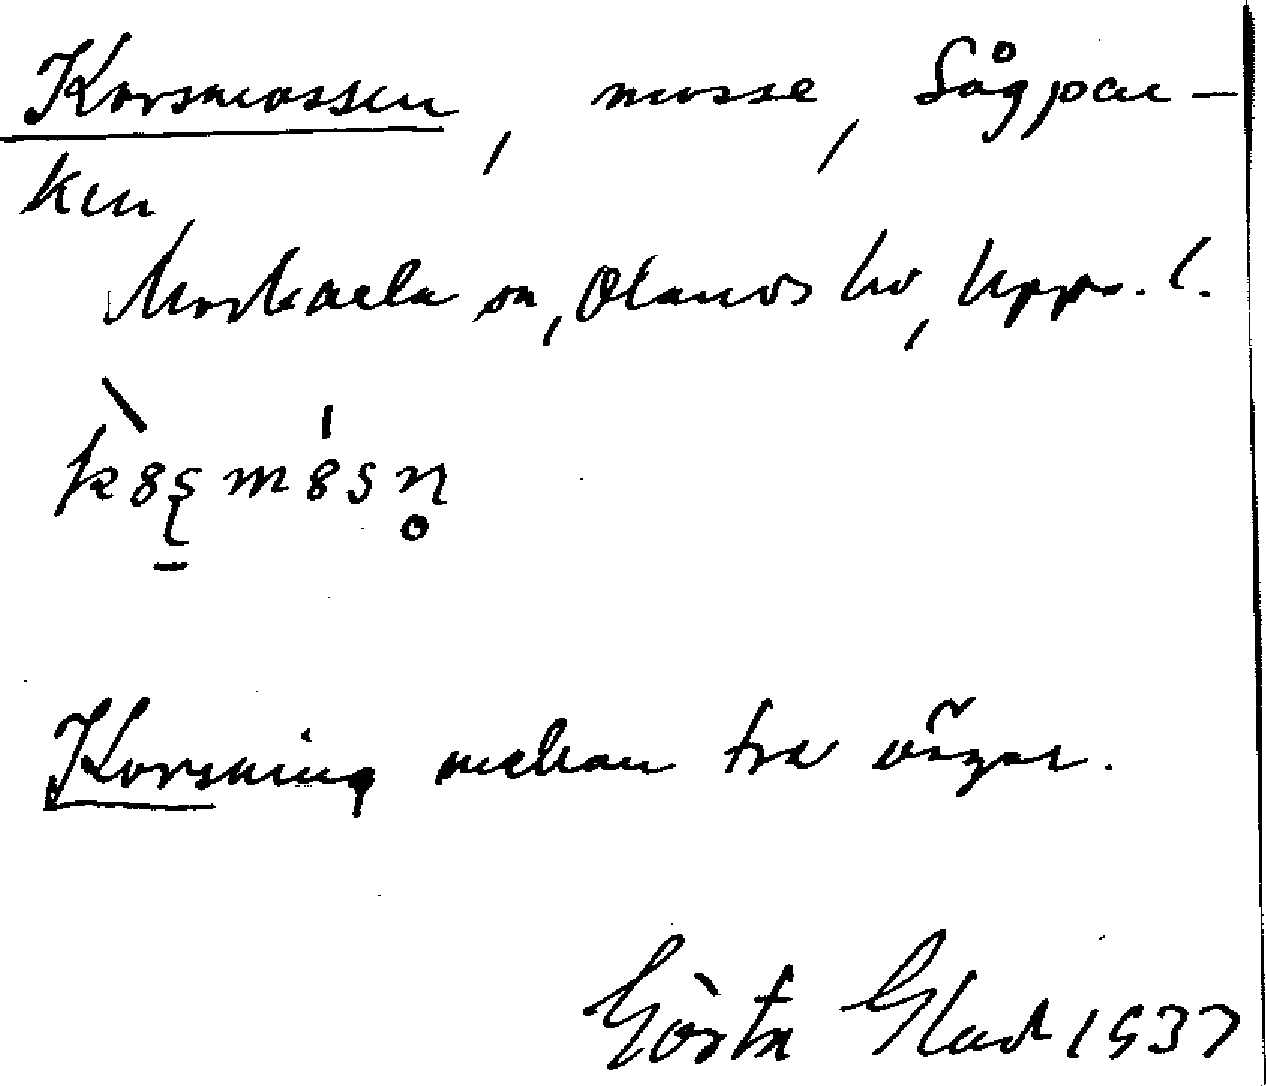 Korsmossen, mosse, Sågpar-
ken
Morkarla sn, Olands hd, Upps. l.
Korsning mellan två vägar.
Gösta Glad 1937